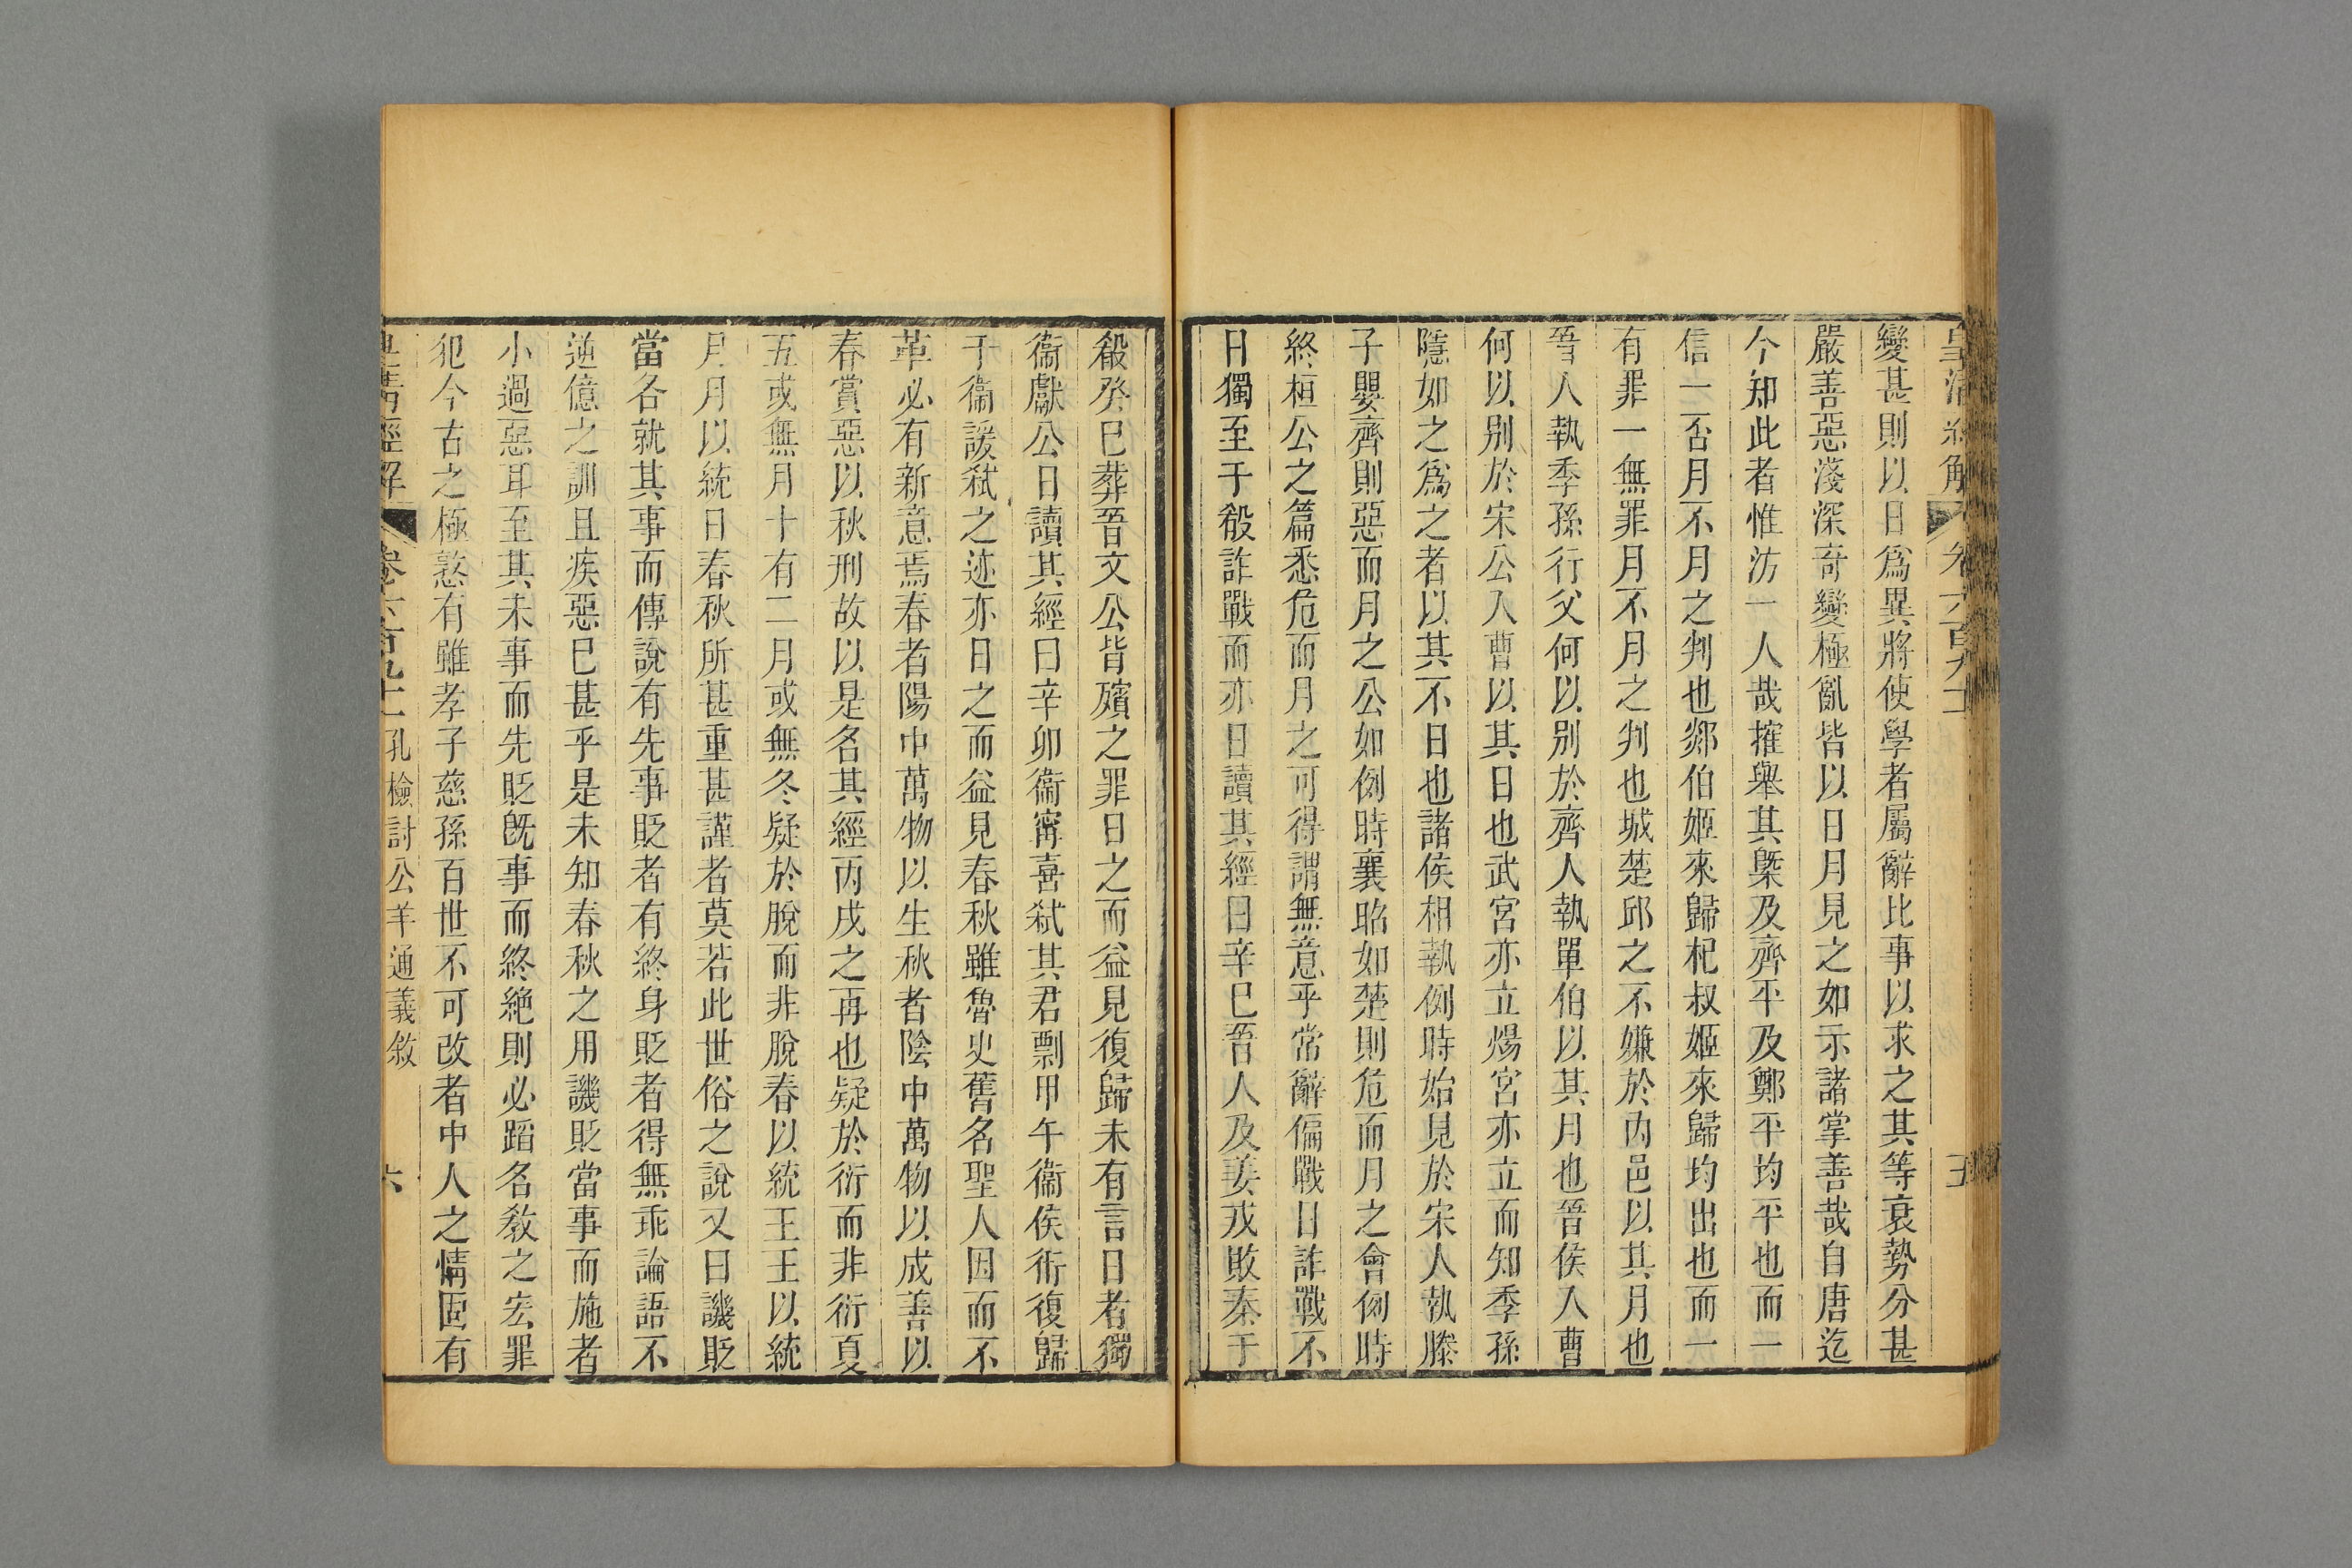 皇清經解 卷六百九十一 五
變甚則以日爲異將使學者屬辭比事以求之其等衰勢分甚
嚴善惡淺深奇變極亂皆以日月見之如示諸掌善哉自唐迄
今知此者惟汸一人哉搉舉其槩及齊平及鄭平均平也而一
信一否月不月之判也郯伯姬來歸杞叔姬來歸均出也而一
有罪一無罪月不月之判也城楚邱之不嫌於內邑以其月也
晉人執季孫行父何以别於齊人執單伯以其月也晉侯入曹
何以别於宋公入曹以其日也武宮亦立煬宮亦立而知季孫
隱如之爲之者以其不日也諸侯相執例時始見於宋人執滕
子嬰齊則惡而月之公如例時襄昭如楚則危而月之會例時
終桓公之篇悉危而月之可得謂無意乎常辭偏戰日詐戰不
日獨至于殽詐戰而亦日讀其經曰辛巳晉人及姜戎敗秦于
殽癸巳葬晉文公皆殯之罪日之而益見復歸未有言日者獨
衞獻公日讀其經曰辛卯衞甯喜弑其君剽甲午衞侯衎復歸
于衞諼弑之迹亦日之而益見春秋雖魯史舊名聖人因而不
革必有新意焉春者陽中萬物以生秋者陰中萬物以成善以
春賞惡以秋刑故以是名其經丙戌之再也疑於衍而非衍夏
五或無月十有二月或無冬疑於脫而非脫春以統王王以統
月月以統日春秋所甚重甚謹者莫若此世俗之說又曰譏貶
當各就其事而傳說有先事貶者有終身貶者得無乖論語不
逆億之訓且疾惡巳甚乎是未知春秋之用譏貶當事而施者
小過惡耳至其未事而先貶旣事而終絶則必蹈名敎之宏罪
犯今古之極慝有雖孝子慈孫百世不可改者中人之情固有
皇清經解 卷六百九十一 孔檢討公羊通義敘 六